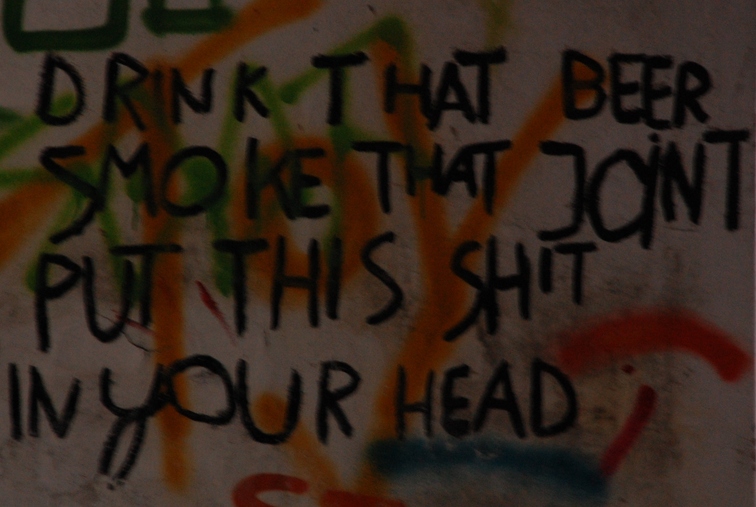 DRINK THAT BEER
SMOKE THAT JOiNT
PUT THIS SHIT
IN YOUR HEAD